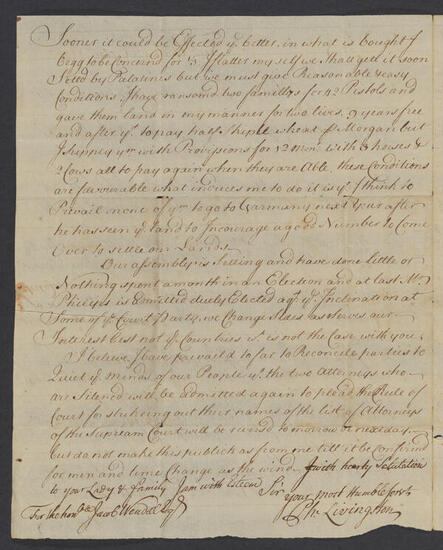 Sooner it could be Effected ye better, in what is bought I
begg to be Concernd for 1/3 I flatter my self we shall gett it soon
Settd by Palatins but we must give Reasonable & easy
Conditions. I have ransomd two familys for 42 Pistols and
gave them land in my manner for two lives. 9 years free
and after yt to pay half shepel wheat P Morgan but
I supply ym with Provisions for 12 Mon. with 2 horses &
2 Cows all to pay again when they are Able. these Conditions
are favourable what induces me to do it is yt I think to
Prevail on one of ym to go to Germany next Year after
he has seen ye land to Incourage a good Number to Come
Over to settle our Lands.
Our assembly is sitting and have done little or
Nothing spent a month in an Election and at last Mr
Philips is admitted duely Elected agt ye Inclination at
Some of ye Court Party, we Change sides as serves our
Interest best not ye Countries yt is not the Case with you.
I believe I have prevaild so far to Reconcile parties to
Quiet ye minds of our People yt the two Attorneys who
are Silencd will be admitted again to plead the Rule of
Court for striking out their names of the list of Attorneys
of the Supream Court will be to morrow or next day.
but do not make this publick as from me till it be Confirmd
for men and time Change as the wind. I with hearty Salutation
to your Lady & family I am with Esteem Sir
Your most humble servt
For the honble Jacob Wendell Esqr Ph Livingston